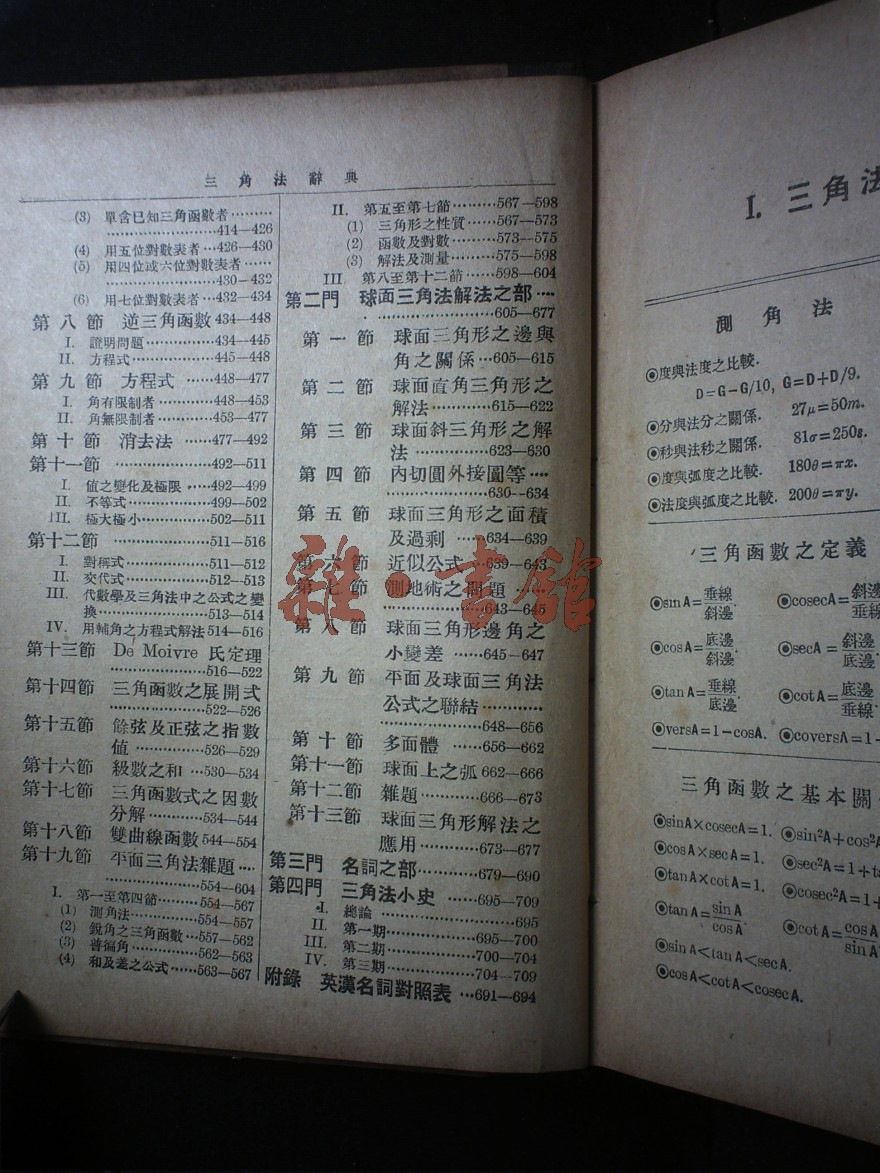 三角法辭典
(3) 單含已知三角函數者………
…………………414—426
(4) 用五位對數表者…426—430
(5) 用四位或六位對數表者……
…………………430—432
(6) 用七位對數表者…432—434
第八節 逆三角函數 434—448
I. 證明問題……………434—445
II. 方程式………………445—448
第九節 方程式……448—477
I. 角有限制者…………448—453
II. 角無限制者…………453—477
第十節 消去法……477—492
第十一節……………492—511
I. 值之變化及極限……492—499
II. 不等式………………499—502
III. 極大極小……………502—511
第十二節……………511—516
I. 對稱式………………511—512
II. 交代式………………512—513
III. 代數學及三角法中之公式之變
換…………………513—514
IV. 用輔角之方程式解法 514—516
第十三節 De Moivre 氏定理
…………………516—522
第十四節 三角函數之展開式
…………………522—526
第十五節 餘弦及正弦之指數
値……………526—529
第十六節 級數之和…530—534
第十七節 三角函數式之因數
分解…………534—544
第十八節 雙曲線函數 544—554
第十九節 平面三角法雜題……
…………………554—604
I. 第一至第四節………554—567
(1) 測角法……………554—557
(2) 銳角之三角函數…557—562
(3) 普徧角……………562—563
(4) 和及差之公式……563—567
II. 第五至第七節………567—598
(1) 三角形之性質………567—573
(2) 函數及對數…………573—575
(3) 解法及測量…………575—598
III 第八至第十二節……598—604
第二門 球面三角法解法之部……
…………………605—677
第一節 球面三角形之邊與
角之關係…605—615
第二節 球面直角三角形之
解法…………615—622
第三節 球面斜三角形之解
法……………623—630
第四節 內切圓外接圓等……
…………………630—634
第五節 球面三角形之面積
及過剩……634—639
第六節 近似公式…639—643
第七節 測地術之問題……
…………………643—645
第八節 球面三角形邊角之
小變差……645—647
第九節 平面及球面三角法
公式之聯結………
…………………648—656
第十節 多面體……656—662
第十一節 球面上之弧 662—666
第十二節 雜題………666—673
第十三節 球面三角形解法之
應用…………673—677
第三門 名詞之部…………679—690
第四門 三角法小史……695—709
I. 總論……………………695
II. 第一期……………695—700
III. 第二期……………700—704
IV. 第三期……………704—709
附錄 英漢名詞對照表…691—694
雜書館
I. 三角法
測角法
◉度與法度之比較.
D=G−G/10, G=D+D/9.
◉分與法分之關係. 27μ=50m.
◉秒與法秒之關係. 81σ=250s.
◉度與弧度之比較. 180θ=πx.
◉法度與弧度之比較. 200θ=πy.
三角函數之定義
◉sinA=垂線/斜邊. ◉cosecA=斜邊/垂線
◉cosA=底邊/斜邊. ◉secA=斜邊/底邊.
◉tanA=垂線/底邊. ◉cotA=底邊/垂線.
◉versA=1−cosA. ◉coversA=1−
三角函數之基本關
◉sinA×cosecA=1. ◉sin²A+cos²
◉cosA×secA=1. ◉sec²A=1+ta
◉tanA×cotA=1. ◉cosec²A=1+
◉tanA=sinA/cosA. ◉cotA=cosA/sinA
◉sinA<tanA<secA.
◉cosA<cotA<cosecA.